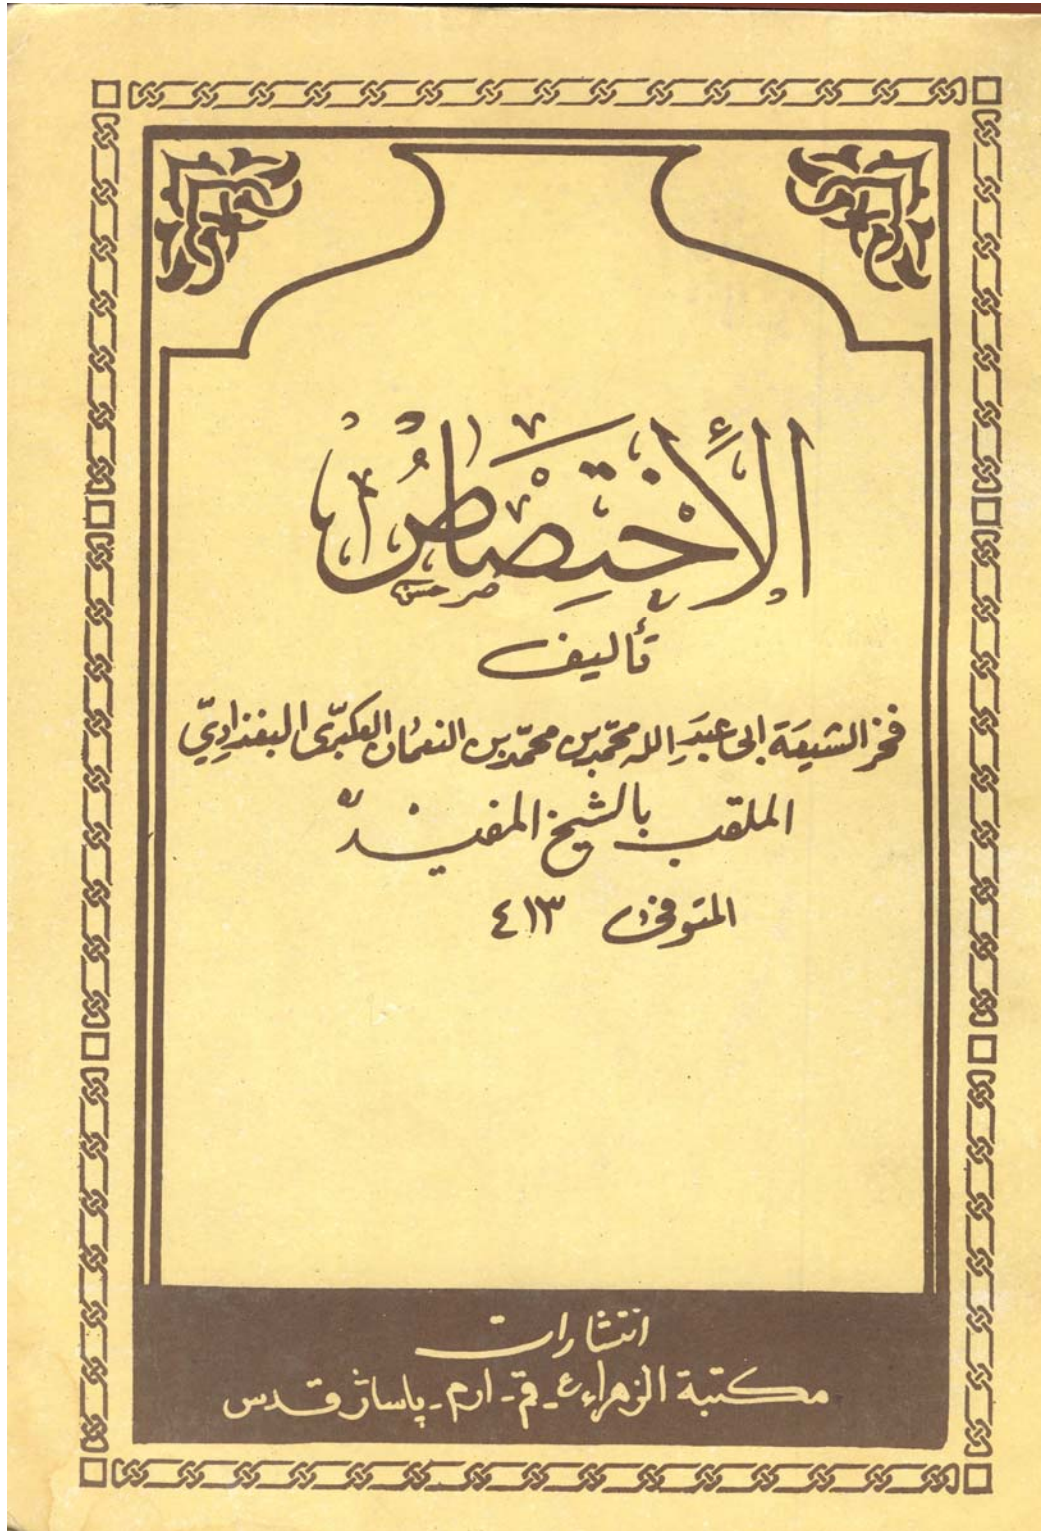 الإختصاص
تأليف
فخر الشيعة إبى عبد الله محمّد بن محمّد بن النعمان العكبرّى البغداديّ
الملقب بالشيخ المفيد ره
المتوفى ٤١٣
انتشارات
مكتبة الزهراء ع - قم - ارم - پاساژ قدس